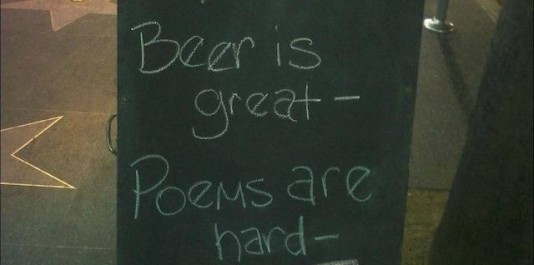 Beer is
great -
Poems are
hard -